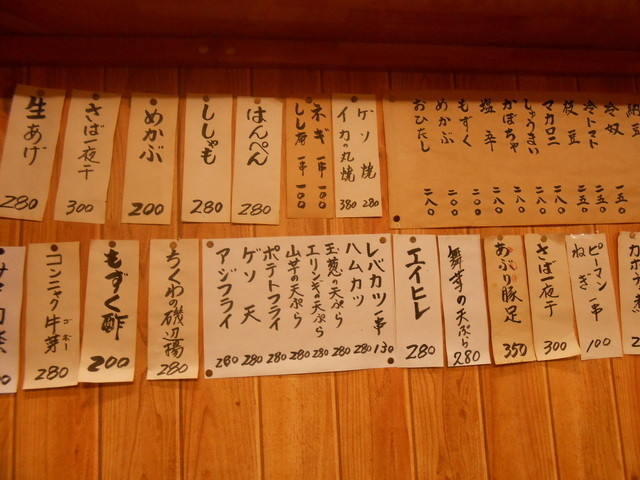 冷奴
冷トマト
枝豆
マカロニ
しゅうまい
かぼちゃ
塩辛
もずく
めかぶ
おひたし
ゲソ焼 280
イカの丸焼 380
ネギ 一串 一〇〇
しし唐 一串 一〇〇
はんぺん 280
ししゃも 280
めかぶ 200
さば一夜干 300
生あげ 280
ピーマン 一串
ねぎ 100
さば一夜干 300
あぶり豚足 350
舞茸の天ぷら 280
エイヒレ 280
レバカツ一串 130
ハムカツ 280
玉葱の天ぷら 280
エリンギの天ぷら 280
山芋の天ぷら 280
ポテトフライ 280
ゲソ天 280
アジフライ 280
ちくわの磯辺揚 280
もずく酢 200
コンニャク牛芽 ゴボー 280